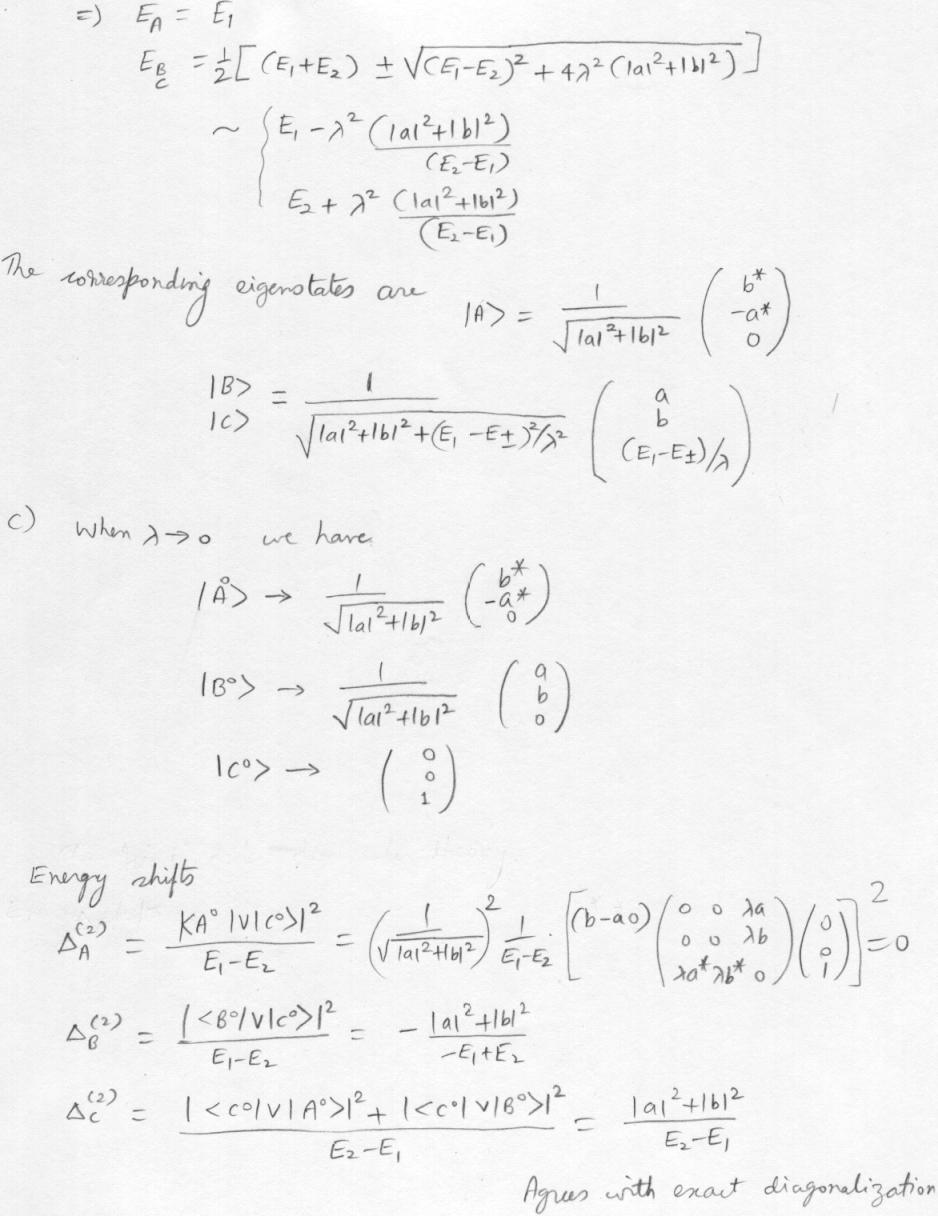 =) E_A = E_1
E_{B C} = 1/2 [ (E_1+E_2) ± √((E_1-E_2)^2 + 4λ^2 (|a|^2+|b|^2)) ]
~ { E_1 - λ^2 (|a|^2+|b|^2) / (E_2-E_1)
E_2 + λ^2 (|a|^2+|b|^2) / (E_2-E_1)
The corresponding eigenstates are |A> = 1/√(|a|^2+|b|^2) ( b* -a* 0 )
|B> |C> = 1/√(|a|^2+|b|^2+(E_1-E_±)^2/λ^2) ( a b (E_1-E_±)/λ )
c) When λ→0 we have
|A°> → 1/√(|a|^2+|b|^2) ( b* -a* 0 )
|B°> → 1/√(|a|^2+|b|^2) ( a b 0 )
|C°> → ( 0 0 1 )
Energy shifts
Δ_A^(2) = |<A°|V|C°>|^2 / E_1-E_2 = (1/√(|a|^2+|b|^2))^2 1/E_1-E_2 · [ (b -a 0) ( 0 0 λa 0 0 λb λa* λb* 0 ) ( 0 0 1 ) ]^2 = 0
Δ_B^(2) = |<B°|V|C°>|^2 / E_1-E_2 = - |a|^2+|b|^2 / -E_1+E_2
Δ_C^(2) = |<C°|V|A°>|^2 + |<C°|V|B°>|^2 / E_2-E_1 = |a|^2+|b|^2 / E_2-E_1
Agrees with exact diagonalization